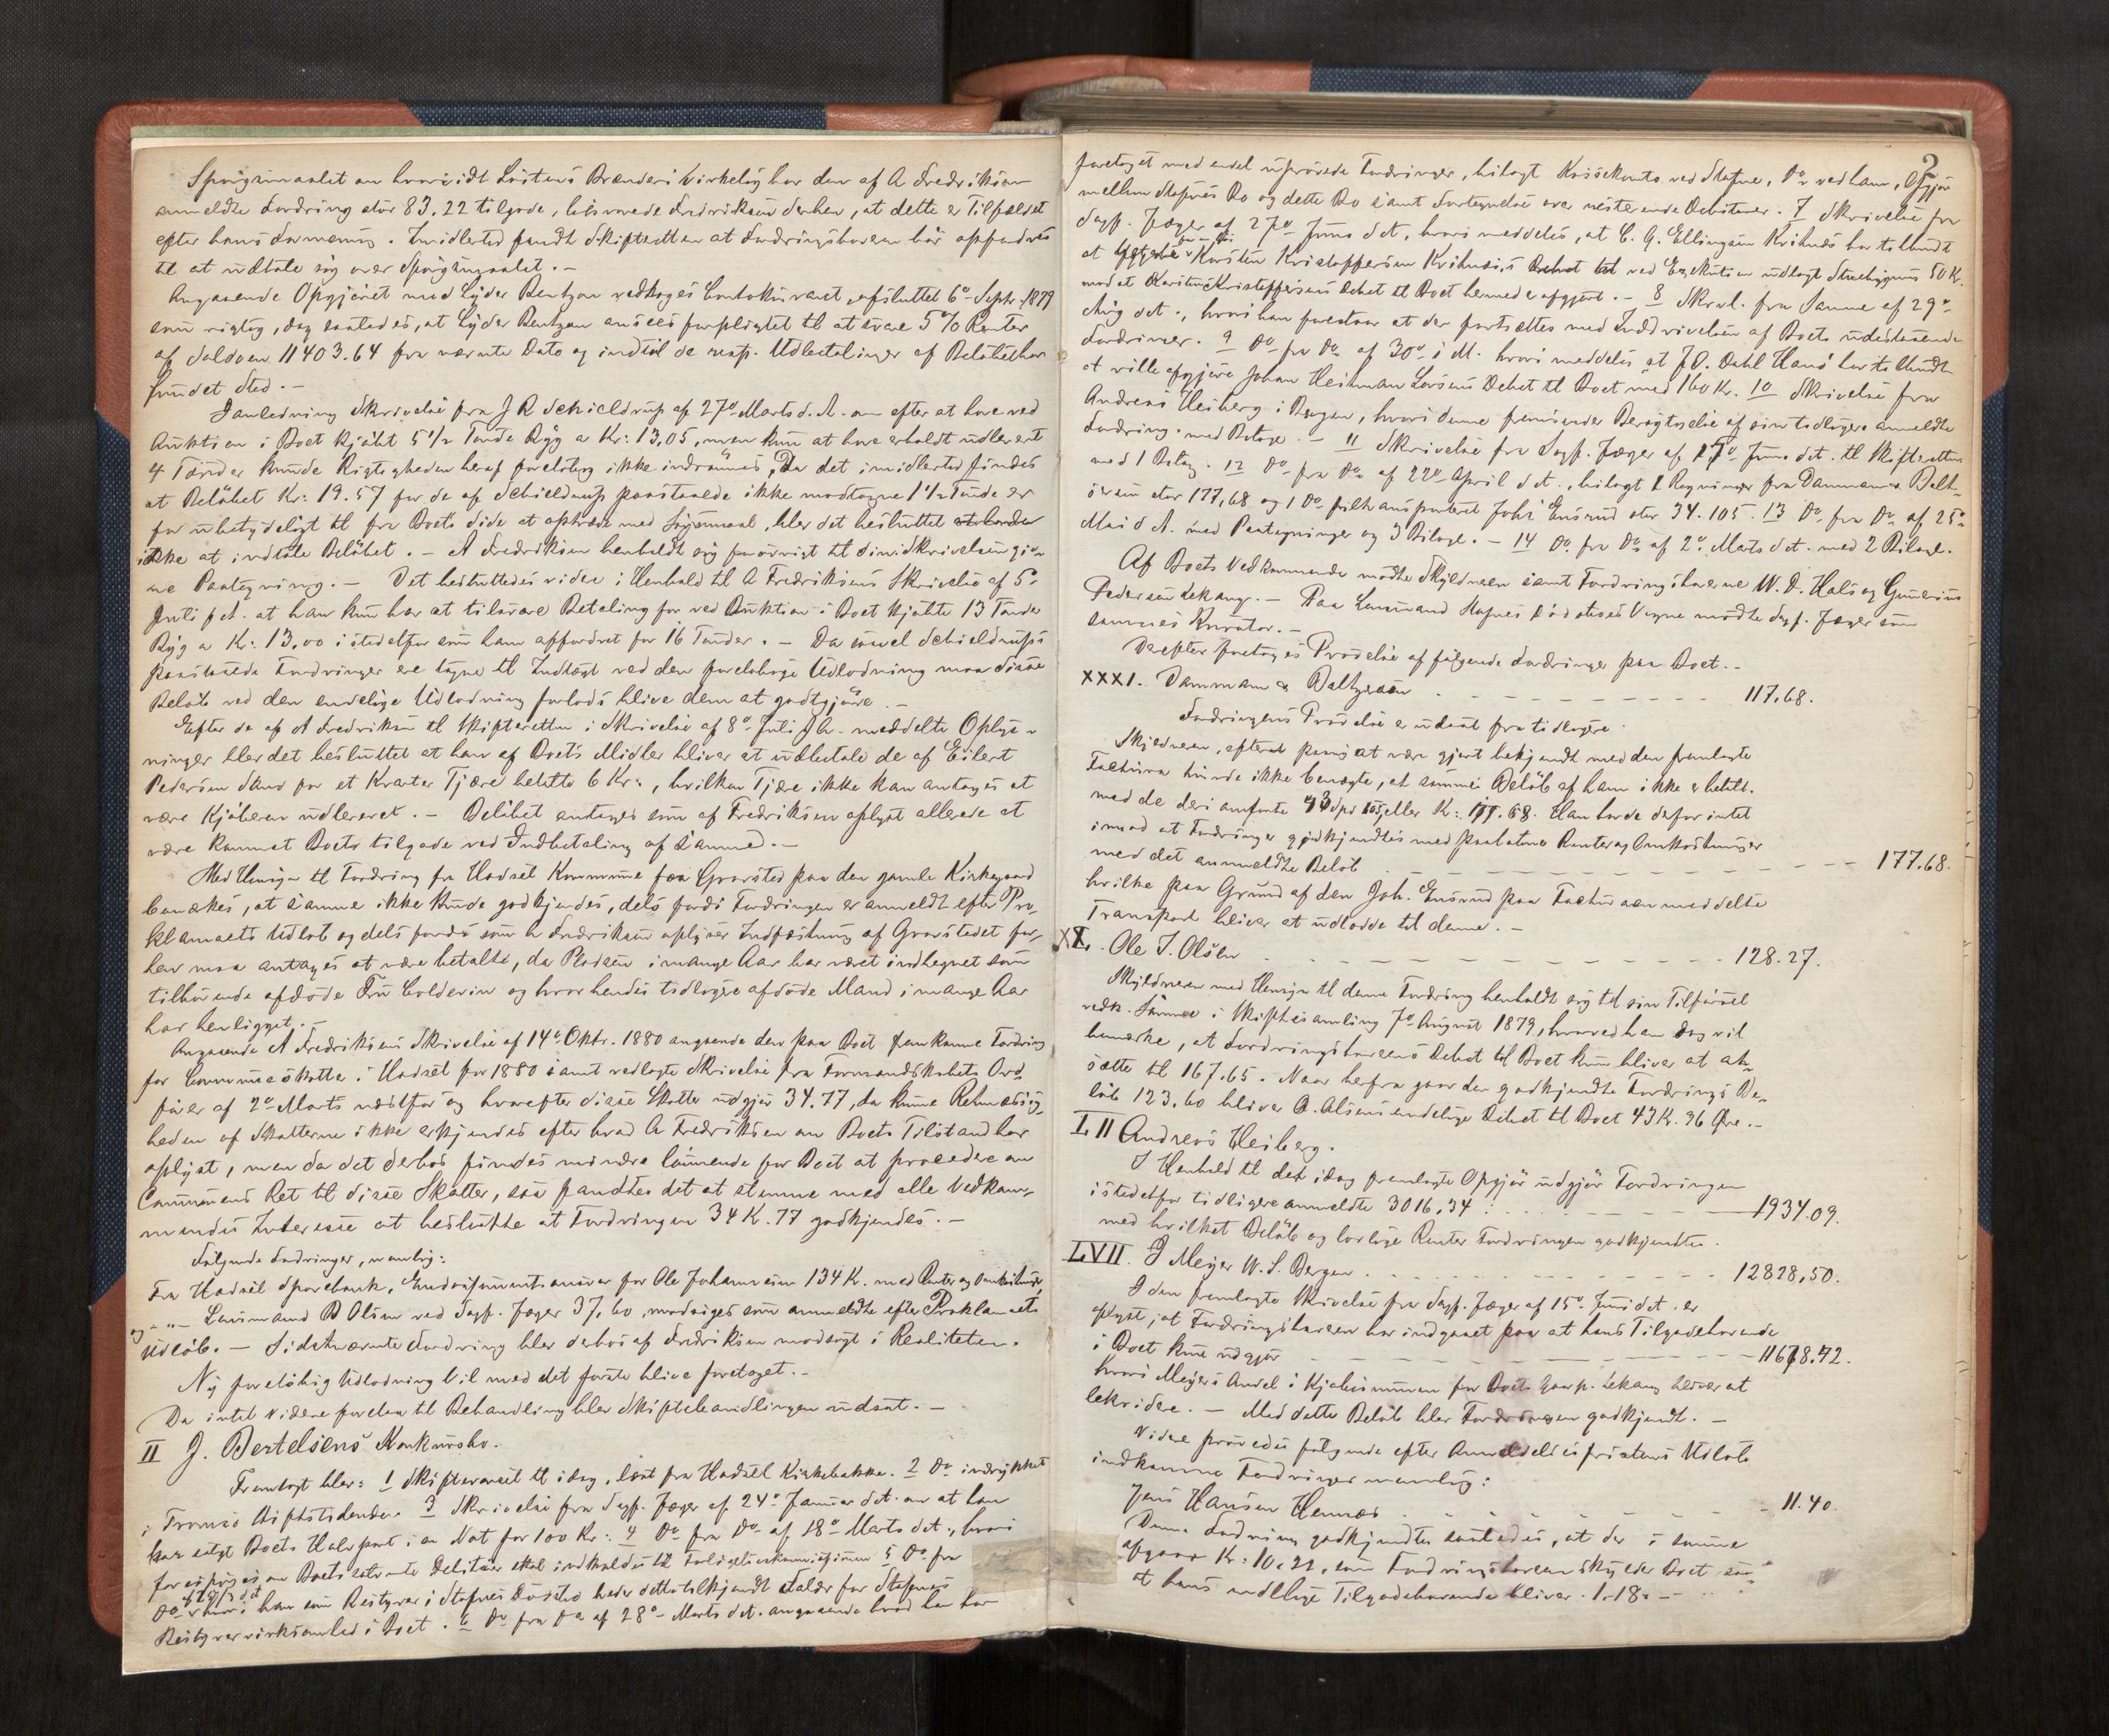 Spørgsmaalet om hvorvidt Løitens Brænderi virkelig har den af A Fredriksen
anmeldte Fordring stor 83.22 tilgode, besvarede Fredriksen derhen, at dette er Tilfældet
efter hans Formening. Imidlertid fandt Skifteretten at Fordringshaveren bør opfordres
til at udtale sig over Spørgsmaalet. -
Angaaende Opgjøret med Lyder Bentzon vedtoges Contokurant afsluttet 6te Septr. 1879
som rigtig, dog saaledes, at Lyder Bentzon ansees forpligtet til at svare 5 % Renter
af Saldoen 11403.64 fra nævnte Dato og indtil de resp. Udbetalinger af Beløbet har
fundet Sted. -
I Anledning Skrivelse fra J R Schieldrup af 27de Marts d. A. om efter at have ved
Auktion i Boet kjøbt 5 1/2 Tønde Ryg a Kr: 13,05, men kun at have erholdt udleveret
4 Tønder kunde Rigtigheden heraf foreløbig ikke indrømmes, Da det imidlertid findes
at Beløbet Kr: 19.57 for de af Schieldrup paastaaede ikke modtagne 1 1/2 Tønde er
for ubetydeligt til fra Boets Side at optræde med Søgsmaal, blev det besluttet
ikke at indtale Beløbet. - A Fredriksen henholdt sig forøvrigt til sin i Skrivelsen giv-
ne Paategning. - Det besluttedes videre i Henhold til A Fredriksens Skrivelse af 5te
Juli f A. at han kun har at tilsvare Betaling for ved Auktion i Boet kjøbte 13 Tønder
Ryg a Kr: 13,00 istedetfor som ham affordret for 16 Tønder. - Da saavel Schieldrups
paastaaede Fordringer ere tagne til Indtægt ved den foreløbige Udlodning maa disse
Beløb ved den endelige Udlodning forlods blive dem at godtgjøre. -
Efter de af A Fredriksen til Skifteretten i Skrivelse af 8de Juli f A. meddelte Oplys-
ninger blev det besluttet at han af Boets Midler bliver at udbetale de af Eilert
Pedersen Sand for et Kvarter Tjære betalte 6 Kr:, hvilken Tjære ikke kan antages at
være Kjøberen udleveret. - Beløbet antages som af Fredriksen oplyst allerede at
være kommet Boets tilgode ved Indbetaling af samme. -
Med Hensyn til Fordring fra Hadsel Kommune for Gravsted paa den gamle Kirkegaard
bemærkes, at samme ikke kunde godkjendes, dels fordi Fordringen er anmeldt efter Pro-
klamaets Udløb og dels fordi som A Fredriksen oplyser Indfæstning af Gravstedet for-
hen maa antages at være betalte, da Pladsen i mange Aar har været indhegnet som
tilhørende afdøde Fru Colderin og hvor hendes tidligere afdøde Mand i mange Aar
har henligget. -
Angaaende A Fredriksens Skrivelse af 14de Oktbr. 1880 angaaende den paa Boet fremkomne Fordring
for Communeskatte i Hadsel for 1880 samt vedlagte Skrivelse fra Formandskabets Ord-
fører af 2den Marts næstfør og hvorefter disse Skatter udgjør 34.77, da kunne Retmæssig-
heden af Skatterne ikke erkjendes efter hvad A Fredriksen om Boets Tilstand har
oplyst, men da det derhos findes mindre lønnende for Boet at procedere om
Communens Ret til disse Skatter, saa fandtes det at stemme med alle Vedkom-
mendes Interesse at beslutte at Fordringen 34 Kr. 77 godkjendes. -
Følgende Fordringer, nemlig:
Fra Hadsel Sparebank, Endossementsansvar for Ole Johannesen 134 Kr. med Renter og Omkostninger
og - " - Lensmand B Olsen ved Sagf. Jæger 37,60, modsiges som anmeldte efter Proklamaets
Udløb. - Sidstnævnte Fordring blev derhos af Fredriksen modsagt i Realiteten.
Ny foreløbig Udlodning vil med det første blive foretaget. -
Da intet videre forelaa til Behandling blev Skiftebehandlingen udsat. -
II J. Bertelsens Konkursbo.
Fremlagt blev: 1 Skiftevarsel til idag, læst fra Hadsel Kirkebakke. 2 Do indrykket
i Tromsø Stiftstidende. 3 Skrivelse fra Sagf. Jæger af 24de Januar d.A. om at han
har solgt Boets Halvpart i en Not for 100 Kr: 4 Do fra Do af 18de Marts d.A., hvori
forespørges om Boets Debitorer skal indkaldes til Forligelseskommissionen 5 Do fra
Do hvori han som Bestyrer i Stafnes Dødsbo beder dette tilkjendt Salær for Stafnes's
Bestyrervirksomhed i Boet. 6 Do fra Do af 28de Marts d.A. angaaende hvad han har
2
foretaget med endel uprøvede Fordringer, bilagt Kassekonto ved Stafne, Do ved ham, Opgjør
mellem Stafnes Bo og dette Bo samt Fortegnelse over resterende Debitorer. 7 Skrivelse fra
Sagf. Jæger af 27de Juni d.A., hvori meddeles, at C. G. Ellingsen Krihnes har tilbudt
at Karsten Kristoffersen Krihnes's Debet ved Exekution udlagt Struebygning 50 Kr.
mod at Karsten Kristoffersens Debet til Boet hermed er afgjort. - 8 Skrivl. fra Samme af 29de
Aug d.A., hvori han foreslaar at der fortsættes med Inddrivelsen af Boets udestaaende
Fordringer. 9 Do fra Do af 30te s M. hvori meddeles at J O. Dahl Hans har tilbudt
at ville afgjøre Johan Heitman Larsens Debet til Boet med 160 Kr. 10 Skrivelse fra
Andreas Heiberg i Bergen, hvori denne fremsender Berigtigelse af sin tidligere anmeldte
Fordring med Bilage. - 11 Skrivelse fra Sagf. Jæger af 15de Juni d.A. til Skifteretten
med 1 Bilag. 12 Do fra Do af 22de April d A., bilagt 1 Regninger fra Damman & Balt-
zersen stor 177,68 og 1 Do filtransporteret Johs Ensrud stor 34.105. 13 Do fra Do af 25de
Mai d A. med Paategninger og 3 Bilage. - 14 Do fra Do af 2den Marts d.A. med 2 Bilage.
Af Boets Vedkommende mødte Skyldneren samt Fordringshaverne W. D. Hals og Gunerius
Pedersen Lekang. - Paa Lensmand Stafnes Dødsboes Vegne mødte Sagf. Jæger som
sammes Kurator. -
Derefter foretoges Prøvelse af følgende Fordringer paa Boet. -
XXXI. Dammann & Baltzersen 117,68.
Fordringens Prøvelse er udsat fra tidligere.
Skyldneren, efterat forrige at være gjort bekjendt med den fremlagte
Factura turde ikke benægte, at samme Beløb af ham ikke er betalt.
med de deri anførte eller Kr: 177.68. Han havde derfor intet
imod at Fordringer godkjendtes med paaløbne Renter og Omkostninger
med det anmeldte Beløb - - - 177.68.
hvilke paa Grund af den Joh. Ensrud paa Facturaen meddelte
Transport bliver at udlodde til denne. -
XL. Ole J. Olsen 128.27.
Skyldneren med Hensyn til denne Fordring henholdt sig til sin Tilførsel
vedk. Samme i Skiftesamling 7de August 1879, hvorved han dog vil
bemærke, at Fordringshaverens Debet til Boet kun bliver at an-
sætte til 167.65. Naar herfra gaar den godkjendte Fordrings Be-
løb 123,60 bliver O. Olsens endelige Debet til Boet 43 Kr. 96 Øre. -
LII Andreas Heiberg.
I Henhold til det idag fremlagte Opgjør udgjør Fordringen
istedetfor tidligere anmeldte 3016,34 1934.09.
med hvilket Beløb og lovlige Renter Fordringen godkjendtes.
LVII. J Meyer W. S. Bergen 12828,50.
I den fremlagte Skrivelse fra Sagf. Jæger af 15de Juni d.A. er
oplyst, at Fordringshaveren har indgaaet paa at hans Tilgodehavende
i Boet kun udgjør 11678.42.
hvori Meyers Andel i Kjøbesummen for Boets Gaarp. Lekang bliver at
lekvidere. - Med dette Beløb blev Fordringen godkjendt. -
Videre prøvedes følgende efter Anmeldelsesfristens Udløb
indkomne Fordringer nemlig:
Jens Hansen Hennes 11.40.
Denne Fordring godkjendtes saaledes, at der i samme
afgaar Kr: 10,22, som Fordringshaveren skylder Boet saa
at hans endelige Tilgodehavende bliver 1.18. -